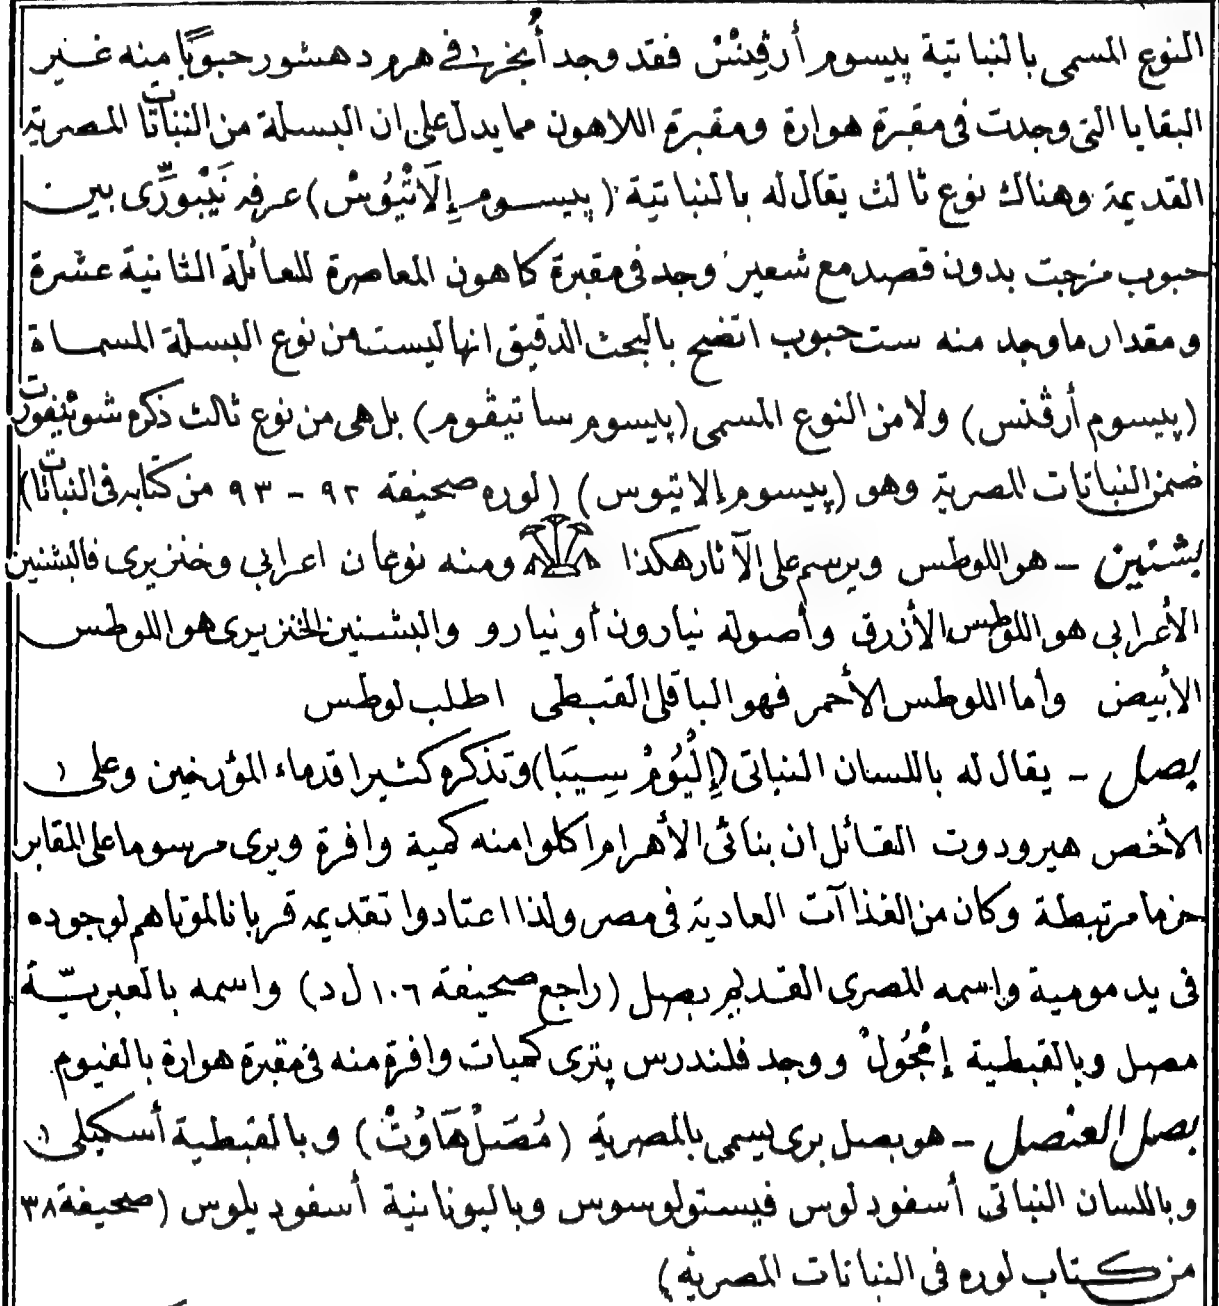 النوع المسمى بالنباتية پيسوم أرڤِنْسْ فقد وجد أُنجر في هرم دهشور حبوبًا منه غير
البقايا التي وجدت في مقبرة هوارة ومقبرة اللاهون مما يدل على ان البسلة من النباتات المصرية
القديمة وهناك نوع ثالث يقال له بالنباتية (پيسوم إِلَاثْيُوسْ) عرفه نَيْبورِّى بين
حبوب مزجت بدون قصد مع شعير وجد في مقبرة كاهون المعاصرة للعائلة الثانية عشرة
ومقدار ما وجد منه ست حبوب اتضح بالبحث الدقيق انها ليست من نوع البسلة المسماة
(پيسوم أرڤنس) ولا من النوع المسمى (پيسوم ساتيڤوم) بل هى من نوع ثالث ذكره شوينفورت
ضمن النباتات المصرية وهو (پيسوم إلاتيوس) (لوره صحيفة ٩٢ - ٩٣ من كتابه فى النباتات)
بشنين - هو اللوطس ويرسم على الآثار هكذا ومنه نوعان اعرابى وخنزيرى فالبشنين
الأعرابى هو اللوطس الأزرق وأصوله نيارون أو نيارو والبشنين الخنزيرى هو اللوطس
الأبيض وأما اللوطس الأحمر فهو الباقلى القبطى اطلب لوطس
بصل - يقال له باللسان النباتى (إِلْيُومْ سِيبَا) وتذكره كثيرا قدماء المؤرخين وعلى
الأخص هيرودوت القائل ان بنائى الأهرام اكلوا منه كمية وافرة ويرى مرسوما على المقابر
حزما مرتبطة وكان من الغذاآت العادية فى مصر ولذا اعتادوا تقديمه قربانا لموتاهم لوجوده
فى يد مومية واسمه المصرى القديم بصل (راجع صحيفة ١٠٦ ل د) واسمه بالعبريّة
مصل وبالقبطية إمْجُولْ ووجد فلندرس پترى كميات وافرة منه فى مقبرة هوارة بالفيوم
بصل العنْصل - هو بصل برى يسمى بالمصرية (مُصَلْ هَاوُتْ) وبالقبطية أسكيلى
وباللسان النباتى أسفودلوس فيستولوسوس وباليونانية أسفوديلوس (صحيفة ٣٨
من كتاب لوره فى النباتات المصرية)